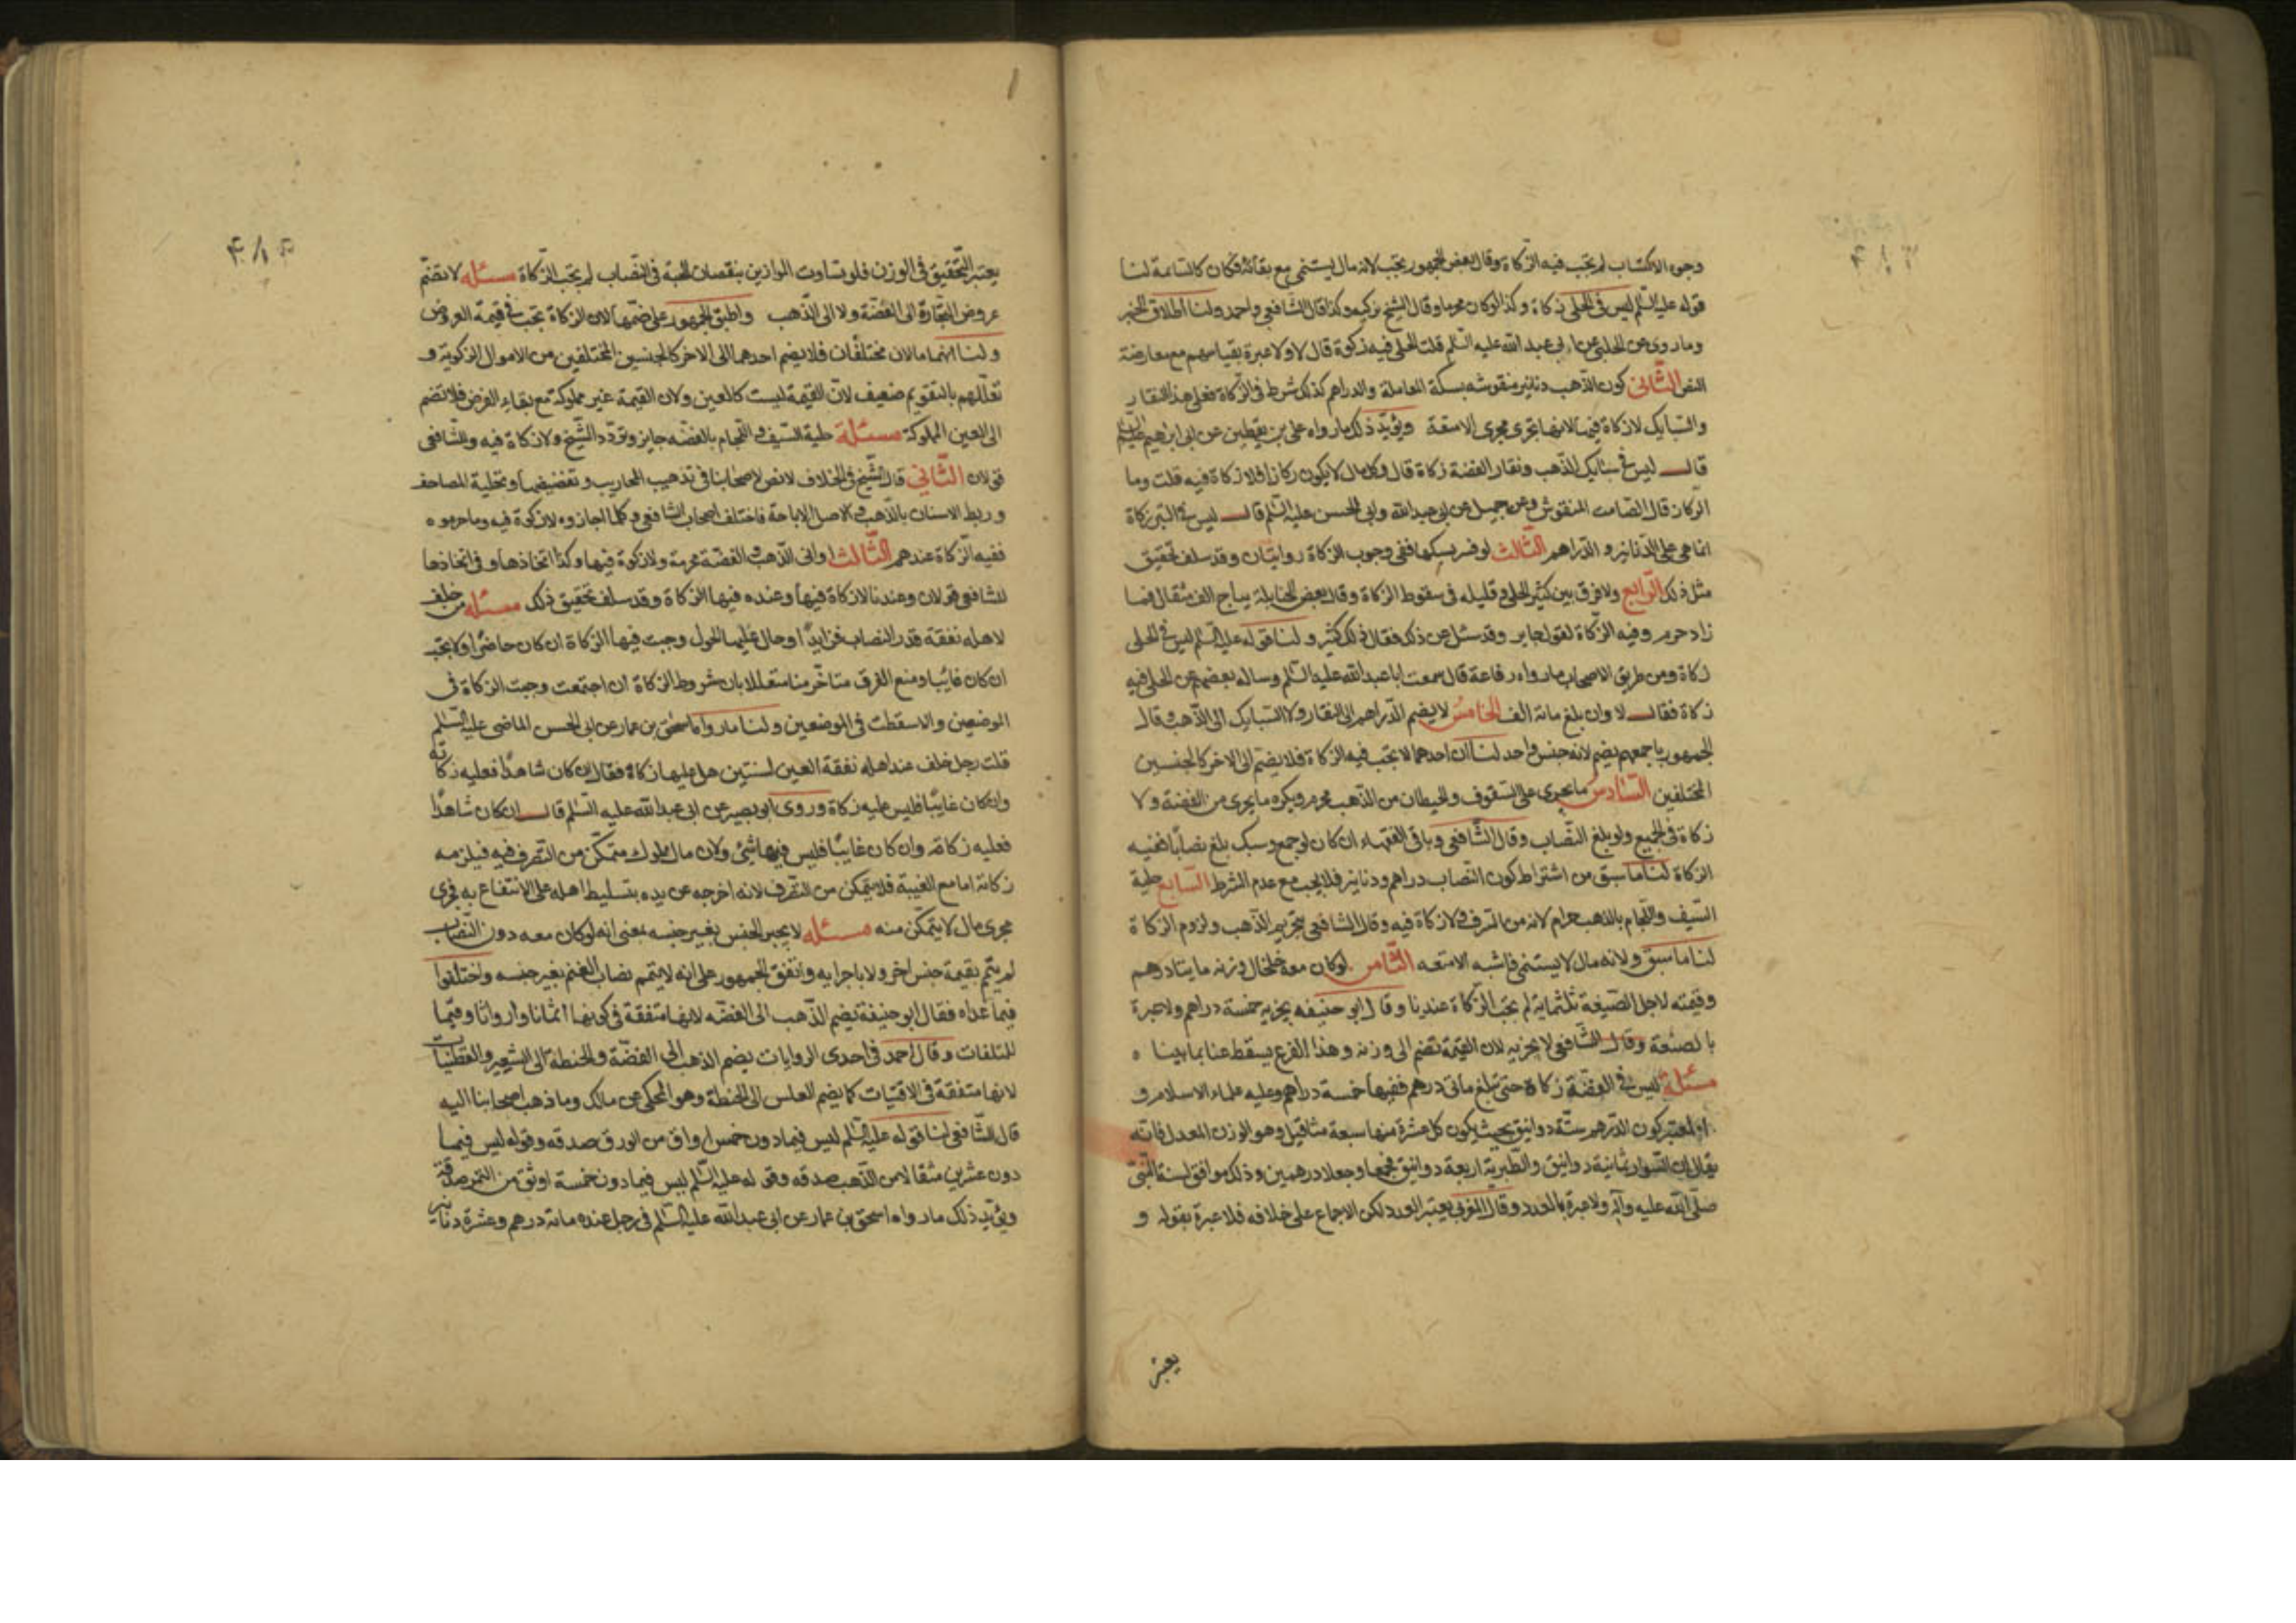 وجوه الاكتساب لم تجب فيه الزكاة وقال بعض الجمهور تجب لانه مال يستنمى مع بقائه فكان كالسائمة لنا
قوله عليه السلم ليس فى الحلى زكاة وكذا لو كان محرما وقال الشيخ يزكيه وكذا قال الشافعى واحمد ولنا اطلاق الخبر
وما روى عن الحلبى عن ابى عبد الله عليه السلم قلت الحلى فيه زكوة قال لا ولا عبرة بقياسهم مع معارضة
النص الثانى كون الذهب دنانير منقوشه بسكة المعاملة والدراهم كذلك شرط فى الزكاة فعلى هذا النقار
والسبايك لا زكاة فيها لانها تجرى مجرى الامتعة ويؤيد ذلك ما رواه على بن يقطين عن ابى ابراهيم عليه السلم
قال ليس فى سبايك الذهب ونقار الفضة زكاة قال وكل مال لا يكون ركازا فلا زكاة فيه قلت وما
الركاز قال الصامت المنقوش وعن جميل عن ابى عبد الله وابى الحسن عليه السلم قال ليس فى التبر زكاة
انما هى على الدنانير والدراهم الثالث لو فر بسبكها ففى وجوب الزكاة روايتان وقد سلف تحقيق
مثل ذلك الرابع ولا فرق بين كثير الحلى وقليله فى سقوط الزكاة وقال بعض الحنابلة يباح الف مثقال فما
زاد حرم وفيه الزكاة لقول جابر وقد سئل عن ذلك فقال ذلك كثير ولنا قوله عليه السلم ليس فى الحلى
زكاة ومن طريق الاصحاب ما رواه رفاعة قال سمعت ابا عبد الله عليه السلم وساله بعضهم عن الحلى فيه
زكاة فقال لا وان بلغ مائة الف الخامس لا يضم الدراهم الى النقار ولا السبايك الى الذهب وقال
الجمهور باجمعهم يضم لانه جنس واحد لنا ان احدهما لا تجب فيه الزكاة فلا يضم الى الاخر كالجنسين
المختلفين السادس ما يجرى على السقوف والحيطان من الذهب محرم ويكره ما يجرى من الفضة ولا
زكاة فى الجميع ولو بلغ النصاب وقال الشافعى وباقى الفقهاء ان كان لو جمع وسبك بلغ نصابا ففيه
الزكاة لنا ما سبق من اشتراط كون النصاب دراهم ودنانير فلا يجب مع عدم الشرط السابع حلية
السيف واللجام بالذهب حرام لانه من السرف ولا زكاة فيه وقال الشافعى بتحريم الذهب ولزوم الزكاة
لنا ما سبق ولانه مال لا يستنمى فاشبه الامتعه الثامن لو كان معه خلخال وزنه مايتا درهم
وقيمته لاجل الصيغة ثلثماية لم تجب الزكاة عندنا وقال ابو حنيفه يجزيه خمسة دراهم ولا عبرة
بالصنعة وقال الشافعى لا يجزيه لان القيمة تضم الى وزنه وهذا الفرع يسقط عنا بما بينا ه
مسئلة ليس فى الفضة زكاة حتى تبلغ مائتى درهم ففيها خمسة دراهم وعليه علماء الاسلام و
المعتبر كون الدرهم ستة دوانيق بحيث يكون كل عشرة منها سبعة مثاقيل وهو الوزن المعدل فانه
يقال ان السود كانت ثمانية دوانيق والطبرية اربعة دوانيق فجمعا وجعلا درهمين وذلك موافق لسنة النبى
صلى الله عليه وآله ولا عبرة بالعدد وقال المغربى يعتبر العدد لكن الاجماع على خلافه فلا عبرة بقوله و
يعتبر
يعتبر التحقيق فى الوزن فلو تساوت الموازين بنقصان الحبة فى النصاب لم تجب الزكاة مسئله لا تضم
عروض التجارة الى الفضة ولا الى الذهب واطبق الجمهور على ضمها لان الزكاة تجب فى قيمة العروض
ولنا انهما مالان مختلفان فلا يضم احدهما الى الاخر كالجنسين المختلفين من الاموال الزكوية و
تعللهم بالتقويم ضعيف لان القيمة ليست كالعين ولان القيمة غير مملوكة مع بقاء العرض فلا تضم
الى العين المملوكة مسئلة حلية السيف واللجام بالفضه جايز وتردد الشيخ ولا زكاة فيه وللشافعى
قولان الثانى قال الشيخ فى الخلاف لا نص لاصحابنا فى تذهيب المحاريب وتفضيضها وتحلية المصاحف
وربط الاسنان بالذهب والاصل الاباحة فاختلف اصحاب الشافعى وكلما اجازوه لا زكوة فيه وما حرموه
ففيه الزكاة عندهم الثالث اوانى الذهب والفضة محرمة ولا زكوة فيها وكذا اتخاذها وفى اتخاذها
للشافعى قولان وعندنا لا زكاة فيها وعنده فيها الزكاة وقد سلف تحقيق ذلك مسئله من خلف
لاهله نفقة قدر النصاب فزايدا وحال عليها الحول وجبت فيها الزكاة ان كان حاضرا ولا تجب
ان كان غايبا ومنع الفرق متاخر منا مستدلا بان شروط الزكاة ان اجتمعت وجبت الزكاة فى
الموضعين والا سقطت فى الموضعين ولنا ما رواه اسحق بن عمار عن ابى الحسن الماضى عليه السلم
قلت رجل خلف عند اهله نفقة الفين لسنتين هل عليها زكاة فقال ان كان شاهدا فعليه زكاته
وان كان غايبا فليس عليه زكاة وروى ابو بصير عن ابى عبد الله عليه السلم قال ان كان شاهدا
فعليه زكاته وان كان غايبا فليس فيها شىء ولان مال مملوك متمكن من التصرف فيه فيلزمه
زكاته اما مع الغيبة فلا يتمكن من التصرف لانه اخرجه عن يده بتسليط اهله على الانتفاع به فجرى
مجرى مال لا يتمكن منه مسئله لا يجبر الجنس بغير جنسه بمعنى انه لو كان معه دون النصاب
لم يتم بقيمة جنس اخر ولا باجزايه واتفق الجمهور على انه لا يتمم نصاب الغنم بغير جنسه واختلفوا
فيما عداه فقال ابو حنيفة يضم الذهب الى الفضه لانها متفقة فى كونها اثمانا واروشا وقيما
للمتلفات وقال احمد فى احدى الروايات يضم الذهب الى الفضة والحنطة الى الشعير والقطنيات
لانها متفقة فى الاقتيات كما يضم العلس الى الحنطة وهو المحكى عن مالك وما ذهب اصحابنا اليه
قال الشافعى لنا قوله عليه السلم ليس فيما دون خمس اواق من الورق صدقه وقوله ليس فيما
دون عشرين مثقالا من الذهب صدقه وقوله عليه السلم ليس فيما دون خمسة اوسق من التمر صدقة
ويؤيد ذلك ما رواه اسحق بن عمار عن ابى عبد الله عليه السلم فى رجل عنده مائة درهم وعشرة دنانير